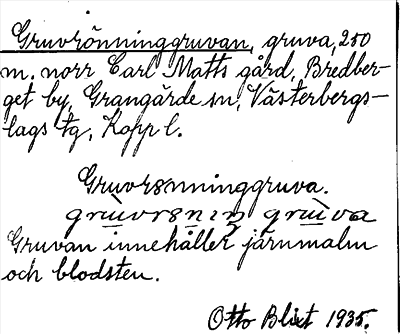 Gruvrönninggruvan, gruva, 250
m. norr Carl Matts gård, Bredber-
get by, Grangärde sn, Västerbergs-
lags tg, Kopp l.
Gruvrönninggruva.
Gruvan innehåller järnmalm
och blodsten.
Otto Blixt 1935.